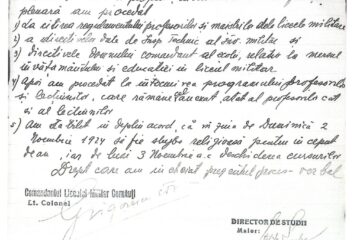 plenară am procedat
1) La citirea regulamentului profesorilor și maeștrilor dela liceele militare
2) a directivelor date de Insp. Technic al Inv. militar și
3) directivele Domnului Comandant al școlei, relativ la mersul
învățământului și educatiei in liceul militar.
4) Apoi am procedat la intocmirea programului profesorilor
și lectiunilor, care rămâne a fi cent, atat al profesorilor cat
și al lectiunilor
5) Am stabilit in deplin acord, că in ziua de Duminică 2
Noembrie 1924 să fie slujba religioasă pentru inceput
de an, iar de luni 3 Noembrie a.c. deschiderea cursurilor.
Drept care am incheiat prezentul proces-verbal.
Comandantul Liceului Militar Cernăuți
Lt. Colonel
DIRECTOR DE STUDII
Maior